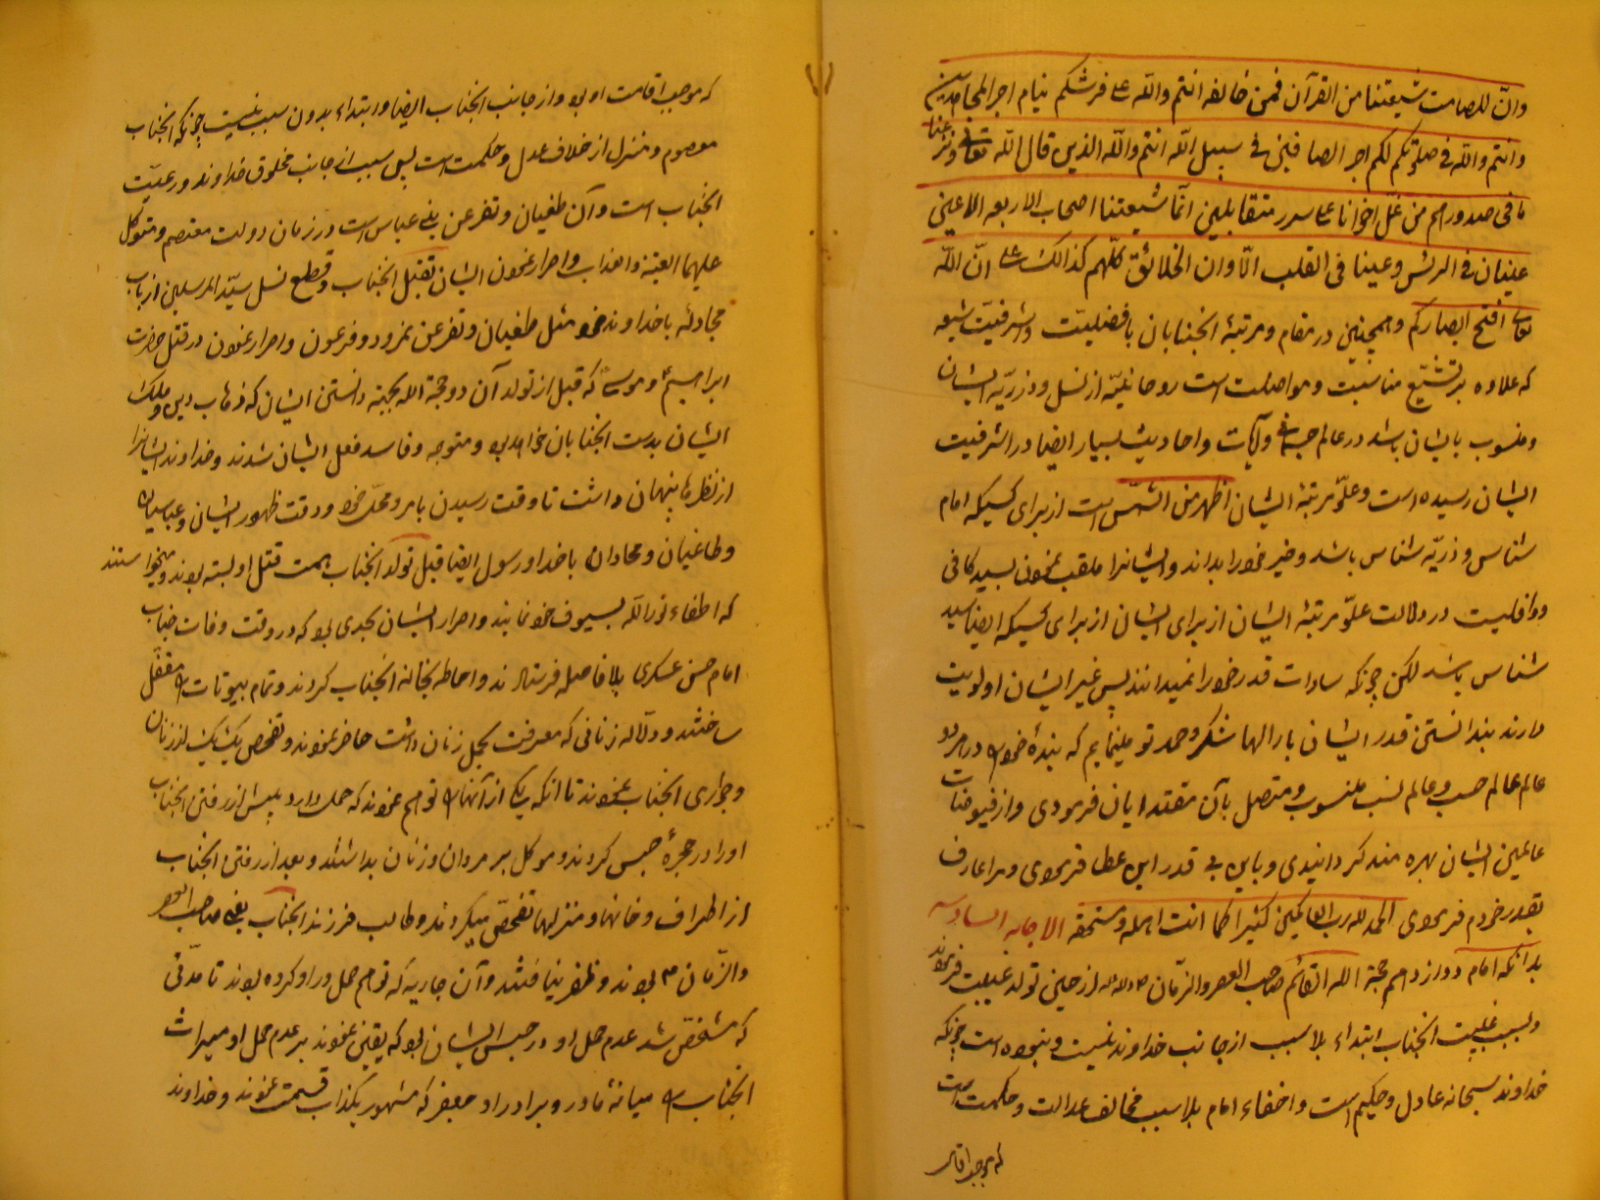 وانّ للصامت شیعتنا من القرآن فمن خالفه انتم والله علی فرشکم نیام اجر المجاهدین
وانتم والله فی صلوتکم لکم اجر الصافین فی سبیل الله انتم والله الذین قال الله تعالی ونزعنا
ما فی صدورهم من غل اخوانا علی سرر متقابلین انّما شیعتنا اصحاب الاربعه الاعین
عینان فی الرئس وعینا فی القلب الّا وان الخلائق کلّهم کذالک انّ الله
افتح ابصارکم وهمچنین در مقام ومرتبهٔ انجنابان بافضلیّت واشرفیّت شیعه
که علاوه بر تشیّع مناسبت ومواصلت است روحانیّه از نسل وذرّیّه ایشان
ومنسوب بایشان باشد در عالم وآیات واحادیث بسیار ایضا در اشرفیت
ایشان رسیده است وعلوّ مرتبهٔ ایشان اظهر من الشمس است از برای کسیکه امام
شناس وذریّه شناس باشد وخیر خود را بداند وایشانرا ملقب نمودن بسید کافی
ووافیست در دلالت علوّ مرتبهٔ ایشان از برای ایشان از برای کسیکه ایضا سید
شناس باشد لکن چونکه سادات قدر خود را نمیدانند پس غیر ایشان اولویت
دارند بندانستن قدر ایشان بار الها شکر وحمد تو مینمایم که بندهٔ خود را در هر دو
عالم عالم حسب وعالم نسب منسوب ومتصل بآن مقتدایان فرمودی واز فیوضات
عالمین ایشان بهره مند گردانیدی وباین بی قدر این عطا فرمودی ومرا عارف
بقدر خودم فرمودی الحمد لله رب العالمین کثیرا کما انت اهله ومستحقه الاجابه السادسه
بدانکه امام دوازدهم حجة الله القائم صاحب العصر والزّمان از حین تولد غیبت فرمودند
وبسبب غیبت انجناب ابتداء بلا سبب از جانب خداوند نیست ونبوده است چونکه
خداوند سبحانه عادل وحکیم است واخفاء امام بلا سبب مخالف عدالت وحکمت است
که موجب اقامت
که موجب اقامت او بود واز جانب انجناب ایضا ورابتداء بدون سبب نیست چونکه انجناب
معصوم ومنزل از خلاف عدل وحکمت است پس سبب از جانب مخلوق خداوند ورعیّت
انجناب است وآن طغیان وتفرعن بنی عباس است در زمان دولت معتصم ومتوکل
علیهما اللعنة والعذاب واصرار نمودن ایشان بقتل انجناب وقطع نسل سیّد المرسلین از باب
مجادله با خداوند مثل طغیان وتفرعن نمرود وفرعون واصرار نمودن در قتل حضرت
ابراهیم وموسی که قبل از تولد آن دو حجة الله بجهة دانستن ایشان که ذهاب دین وملک
ایشان بدست انجنابان خواهد بود ومتوجه وفاسد فعل ایشان شدند وخداوند ایشانرا
از نظرها پنهان داشت تا وقت رسیدن بامر ومحلّ خود ووقت ظهور ایشان وعباسیان
وطاغیان ومحادان با خدا ورسول ایضا قبل تولد انجناب همت قتل او بسته بودند ومیخواستند
که اطفاء نور الله بسیوف خود نمایند واصرار ایشان بحدی بود که در وقت وفات جناب
امام حسن عسکری بلا فاصله فرستادند واحاطه بخانه انجناب کردند وتمام بیوتات را مقفّل
ساختند ودلّاله زنانی که معرفت بحمل زنان داشت حاضر نمودند وتفحص یک یک از زنان
وجواری انجناب نمودند تا آنکه یکی از آنها را توهم نمودند که حمل دارد پیش از رفتن انجناب
او را در حجرهٔ حبس کردند وموکل بر مردان وزنان بداشتند وبعد از رفتن انجناب
از اطراف وخانها ومنزلها تفحّص میکردند وطالب فرزند انجناب یعنی صاحب العصر
والزّمان بودند وظفر نیافتند وآن جاریه که توهم حمل در او کرده بودند تا مدّتی
که مشخّص شد عدم حمل او در حبس ایشان بود که یقین نمودند بر عدم حمل او ومیراث
انجناب را میانهٔ مادر وبرادر او جعفر که مشهور بکذاب قسمت نمودند وخداوند